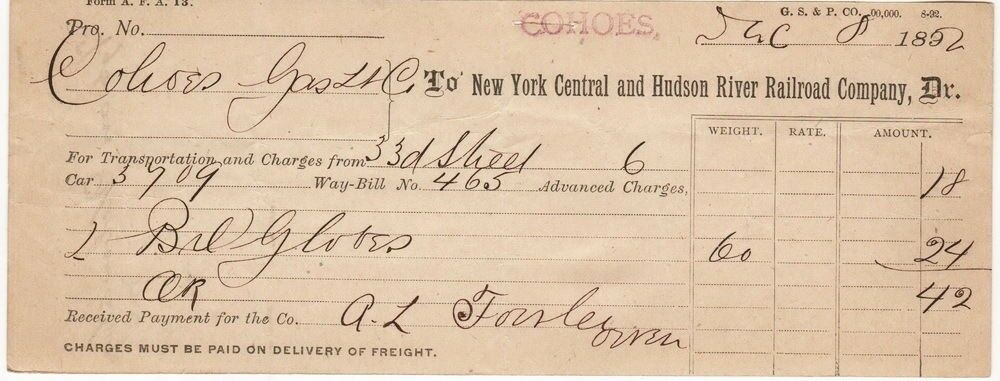 Form A. F. A. 13.
G. S. & P. CO. 00,000. 8-92.
Pro. No.
COHOES.
Dec 8 1892
Cohoes Gas Lt Co. To New York Central and Hudson River Railroad Company, Dr.
WEIGHT. RATE. AMOUNT.
For Transportation and Charges from 33d Street 6
Car 3709 Way-Bill No. 465 Advanced Charges, 18
1 Brl Globes 60 24
OR 42
Received Payment for the Co. A. L
CHARGES MUST BE PAID ON DELIVERY OF FREIGHT.